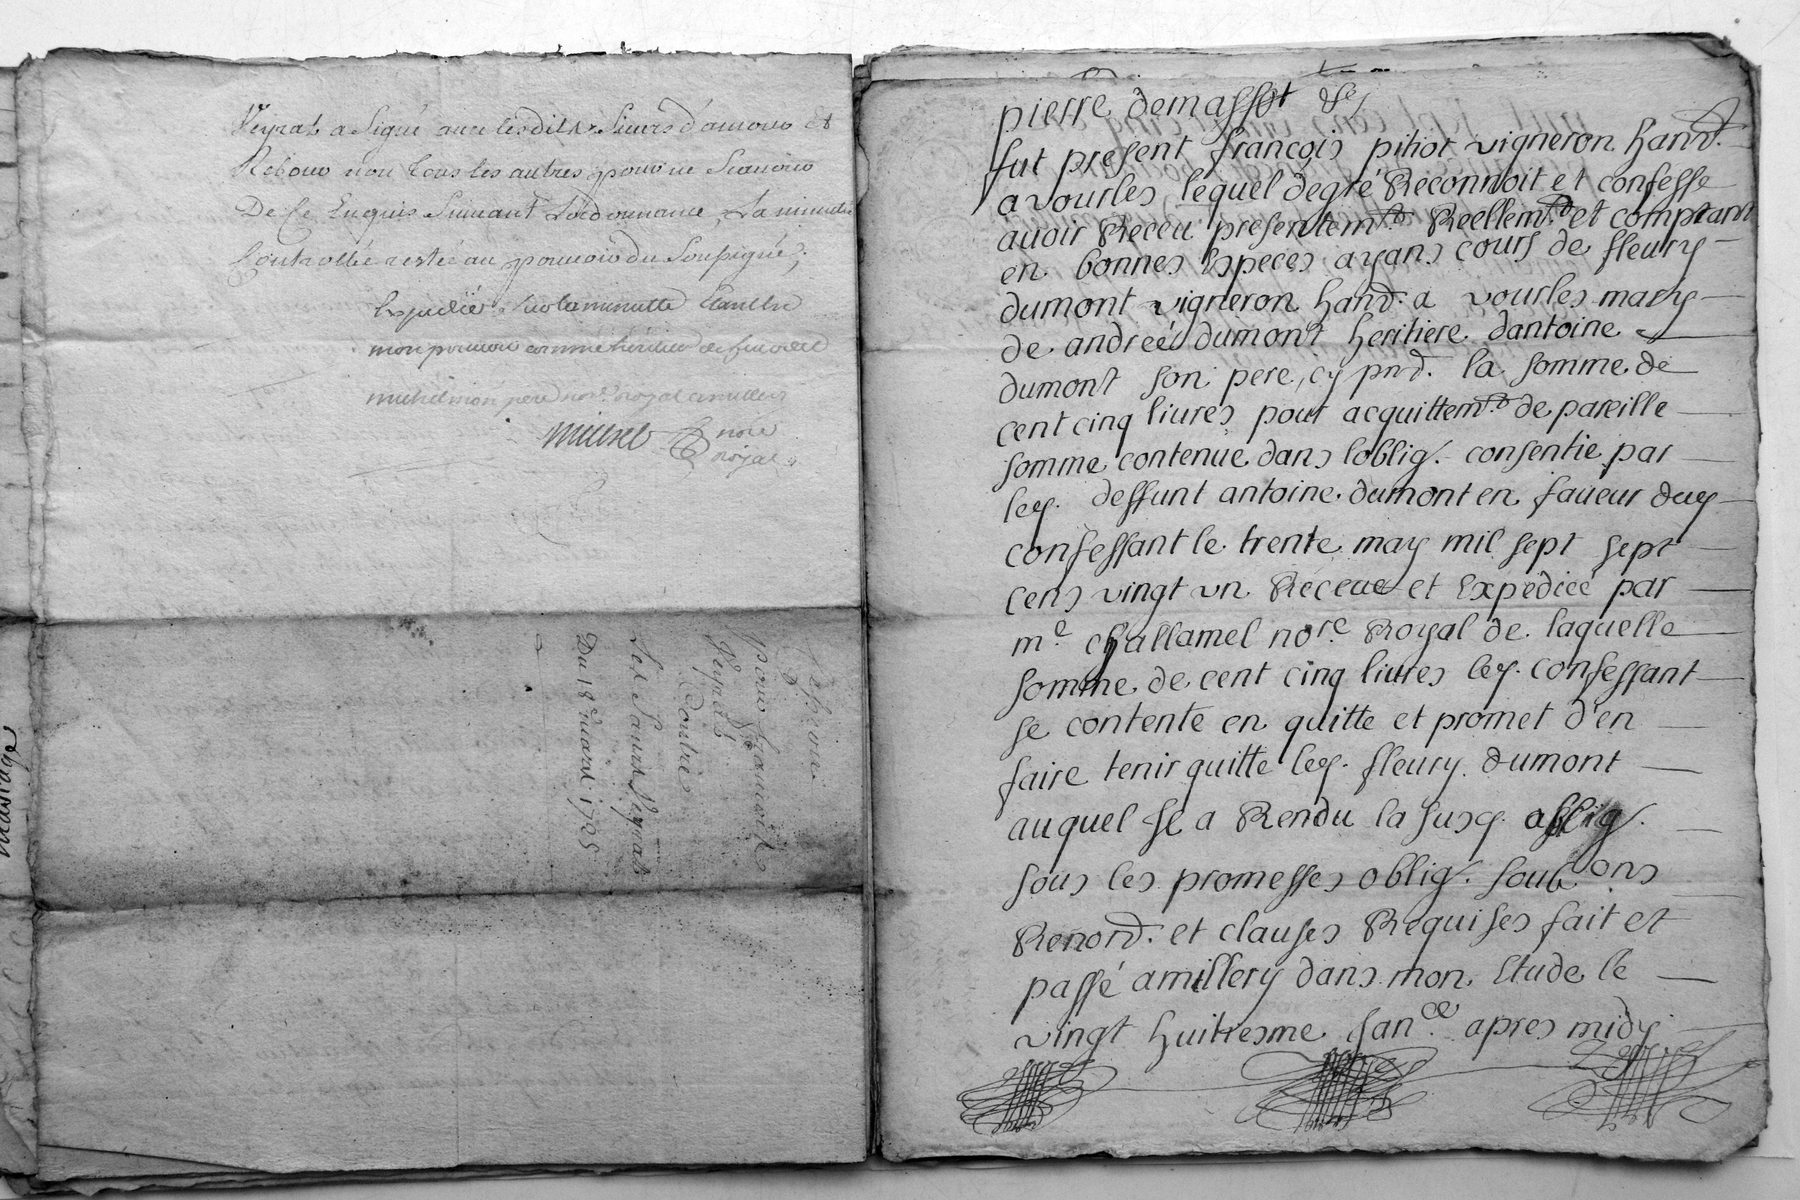 Veyrat a Signé avec lesdits Sieurs d'amour et
Rebour non tous les autres pour ne Scavoir
De Ce Enquis Suivant Lordonnance, La minutte
Controllée restée au pouvoir du Soussigné,
Expedié Sur la minutte Etant en
mon pouvoir comme héritier de feu
michel mon pere nore. royal a millery
michel nore
royal
pour
Veyrat
Contre
Led. Veyrat
Du 18e mars 1725
mariage
pierre demassot &c
fut present francois pitiot vigneron hand.
a vourles lequel degré Reconnoit et confesse
auoir Receu presentemt. Reellemt. et comptant
en bonnes Especes ayans cours de fleury
dumont vigneron hand. a vourles mary
de andreé dumont heritiere dantoine
dumont son pere, cy pnd. la somme de
cent cinq liures pour acquittemt. de pareille
somme contenue dans loblig. consentie par
ley. deffunt antoine dumont en faueur duy
confessant le trente may mil sept sept
cens vingt vn Receue et Expediée par
me. challamel nore. Royal de laquelle
somme de cent cinq liures ley. confessant
se contente en quitte et promet d'en
faire tenir quitte ley. fleury dumont
auquel il a Rendu la susy. oblig.
sous les promesses oblig. soubons
Renond. et clauses Requises fait et
passé amillery dans mon Etude le
vingt huitiesme Jance. apres midy